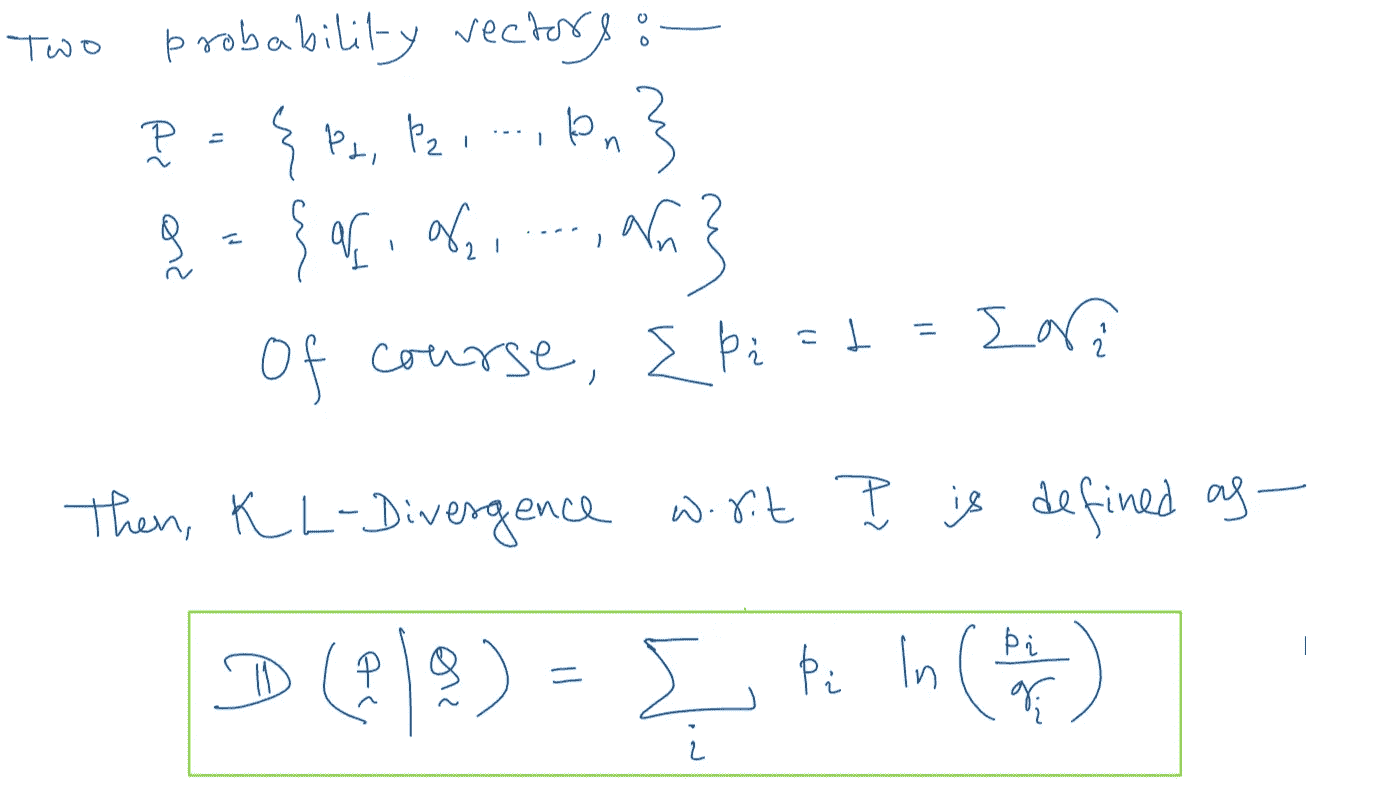 Two probability vectors :—
P̰ = { p₁, p₂, ..., pₙ }
Q̰ = { q₁, q₂, ...., qₙ }
Of course, Σ pᵢ = 1 = Σ qᵢ
Then, KL-Divergence w.r.t P̰ is defined as —
D ( P̰ | Q̰ ) = Σᵢ pᵢ ln ( pᵢ / qᵢ )